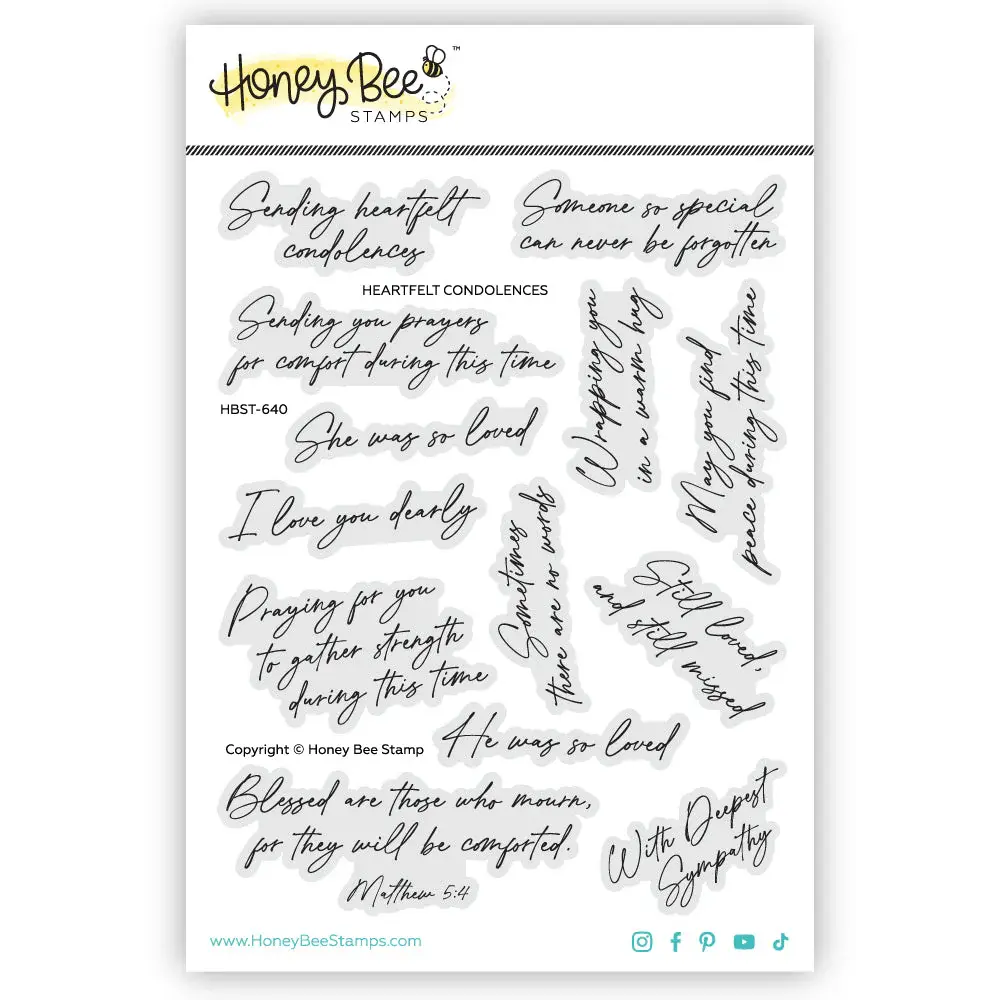 Honey Bee ™
STAMPS
Sending heartfelt
condolences
Someone so special
can never be forgotten
HEARTFELT CONDOLENCES
Sending you prayers
for comfort during this time
Wrapping you
in a warm hug
May you find
peace during this time
HBST-640
She was so loved
I love you dearly
Sometimes
there are no words
Still loved,
and still missed
Praying for you
to gather strength
during this time
He was so loved
Copyright © Honey Bee Stamp
Blessed are those who mourn,
for they will be comforted.
Matthew 5:4
With Deepest
Sympathy
www.HoneyBeeStamps.com